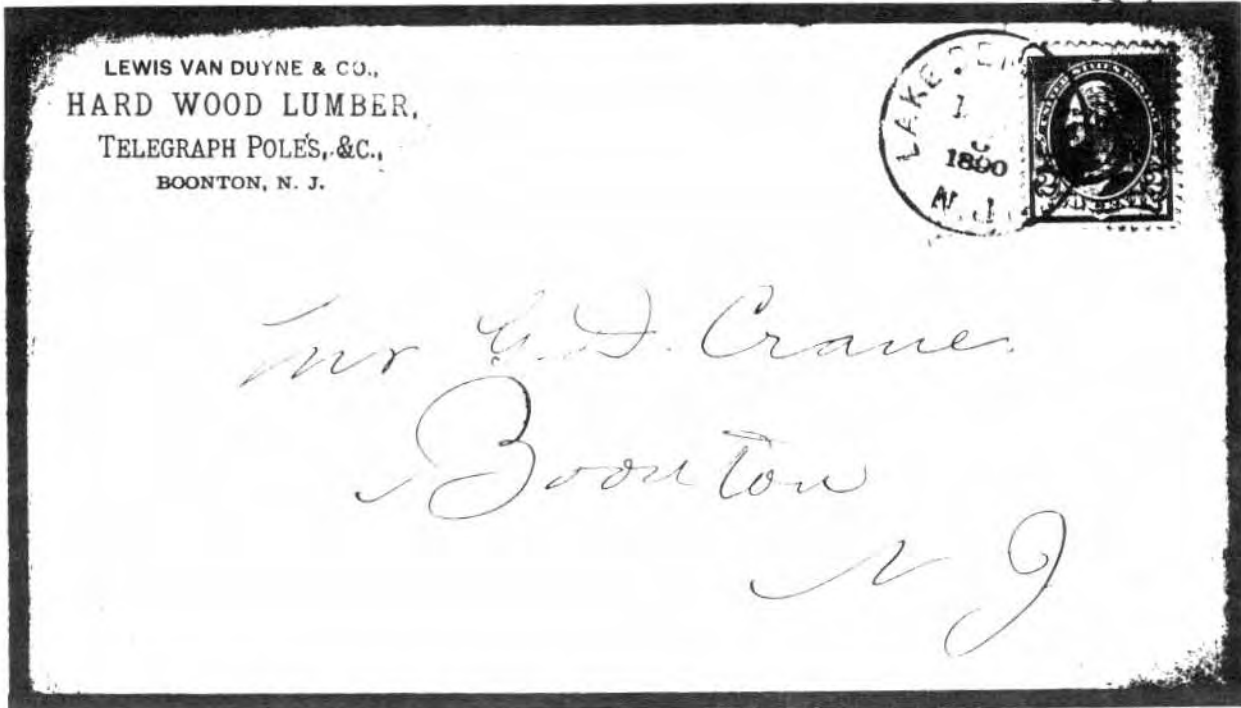 LEWIS VAN DUYNE & CO.,
HARD WOOD LUMBER,
TELEGRAPH POLE'S, &C.,
BOONTON, N. J.
LAKE DEN
1890
N. J.
UNITED STATES POSTAGE
2 2
CENTS
Mr G. D. Crane
Boonton
N J